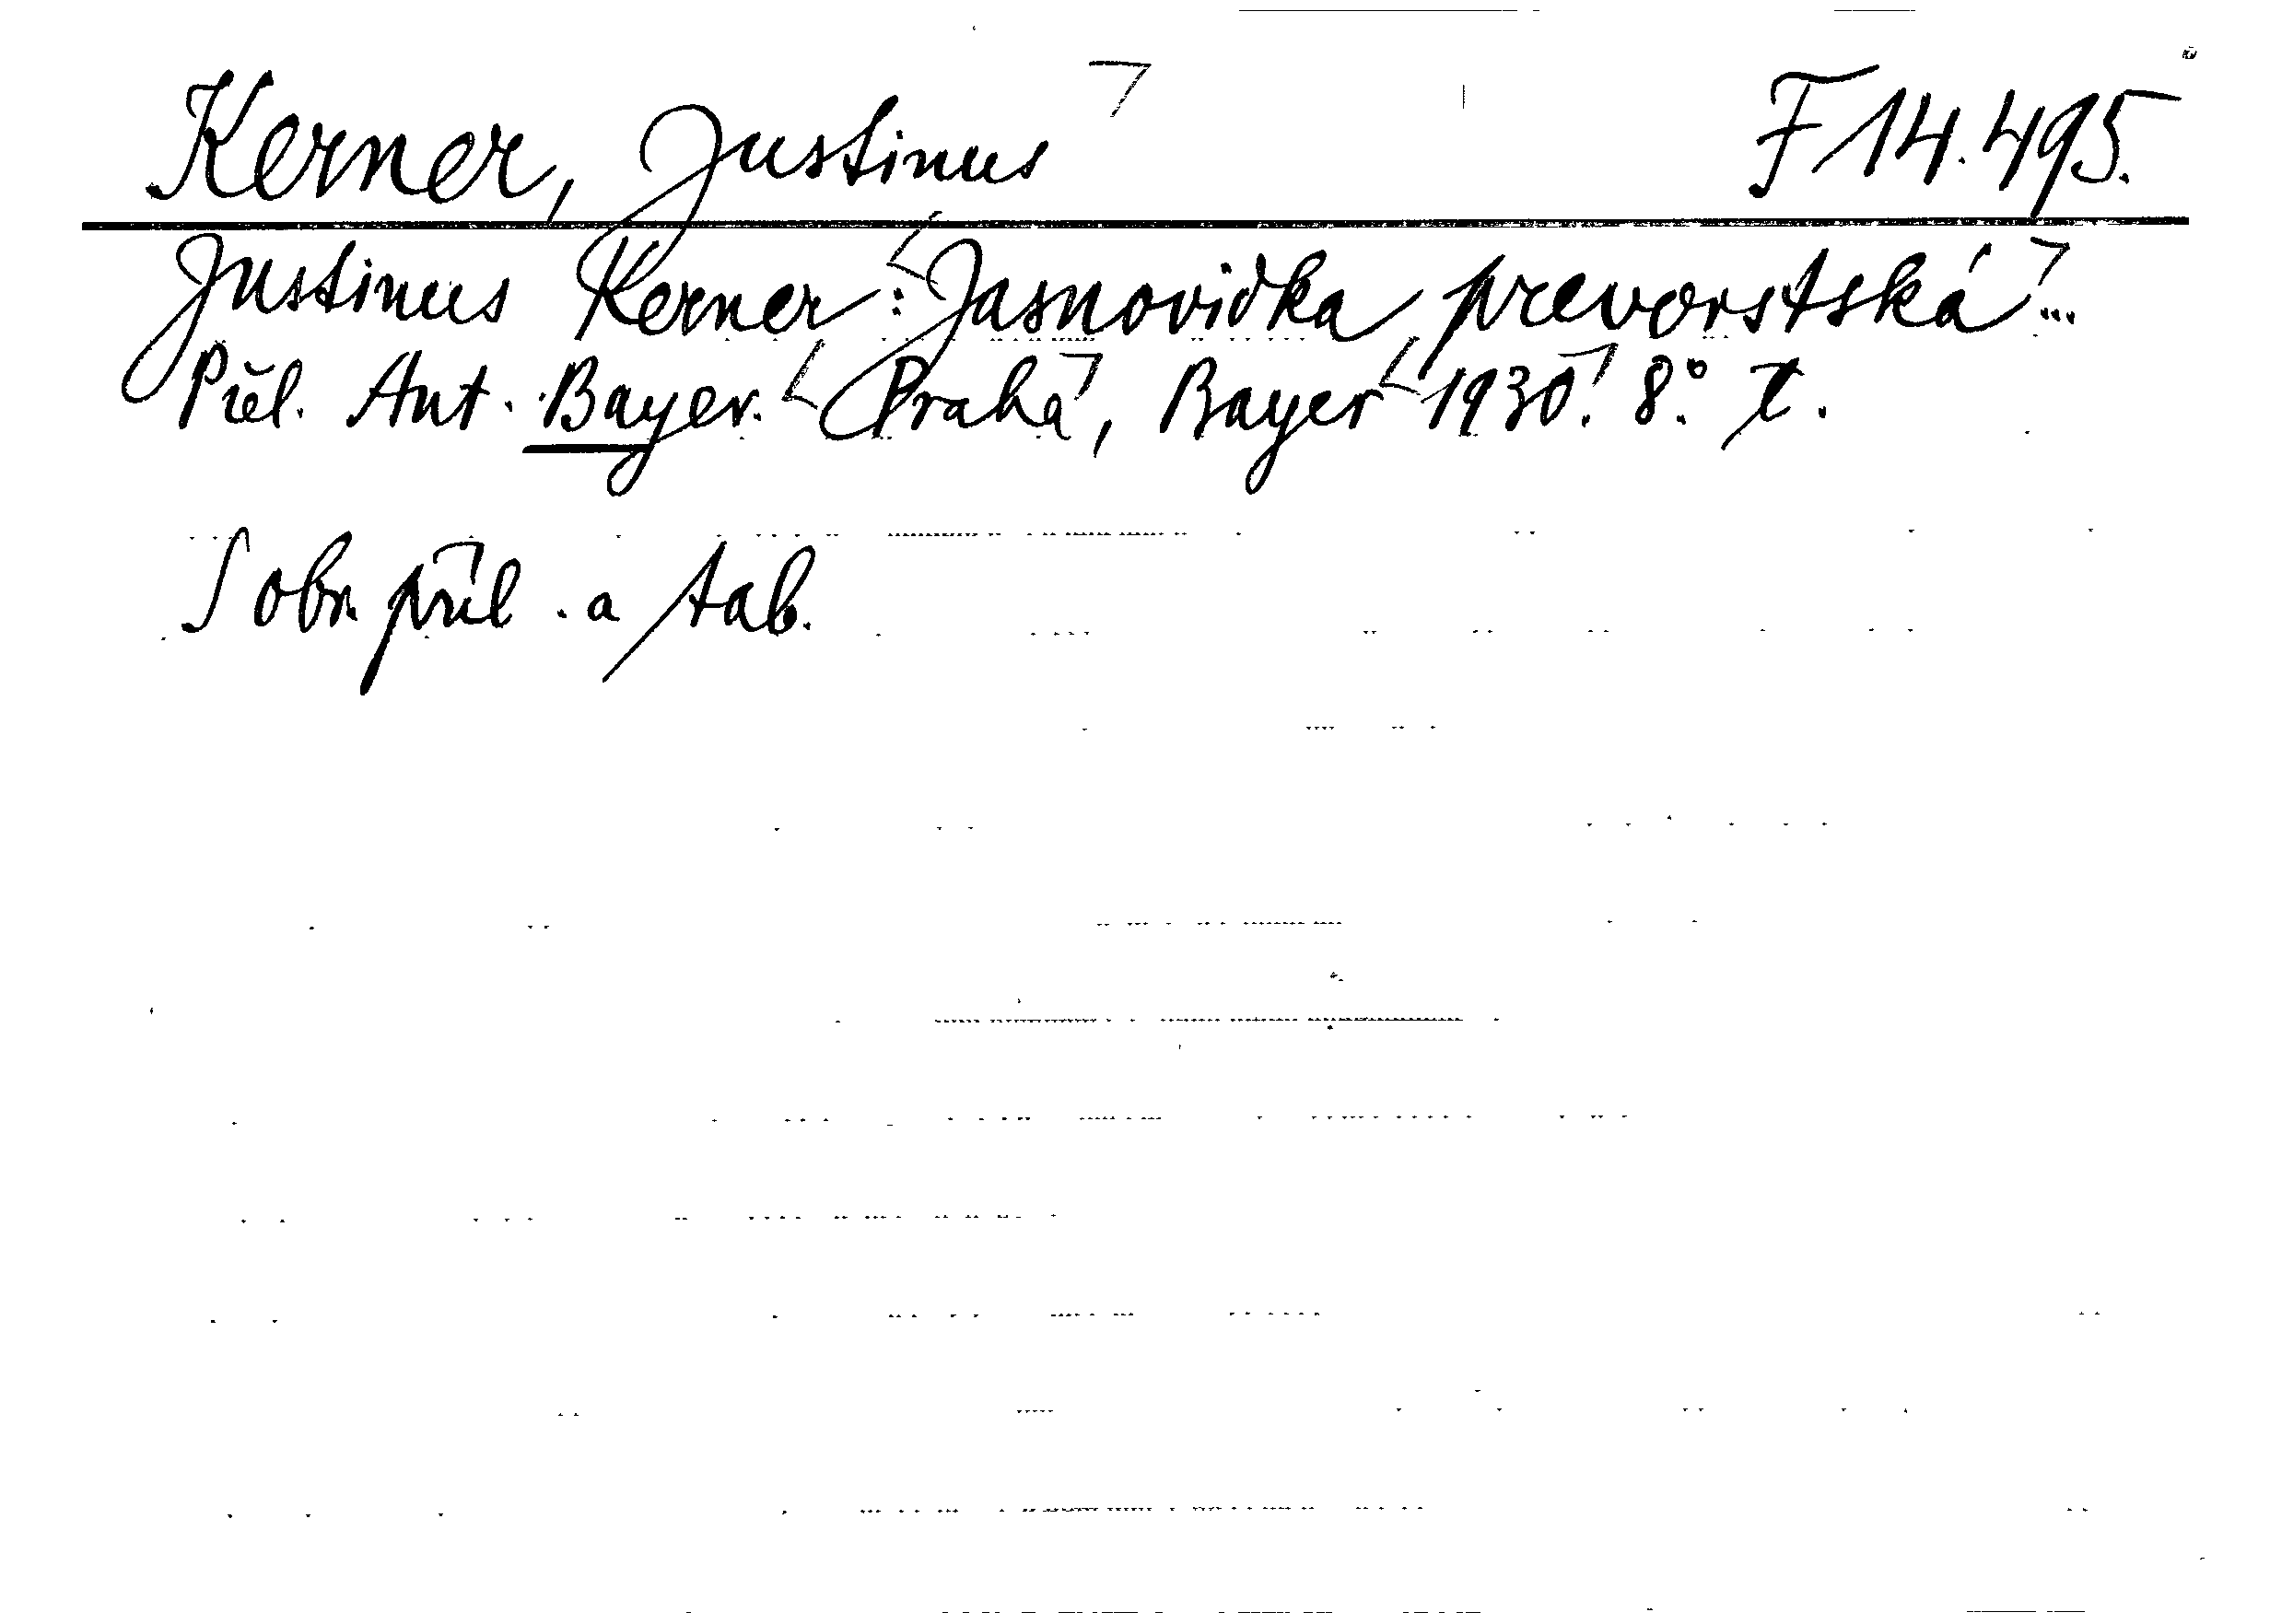 Kerner, Justinus F 14.495.
Justinus Kerner: Jasnovidka prevorstská...
Přel. Ant. Bayer. Praha, Bayer 1930. 8°. t.
S obr. příl. a tab.